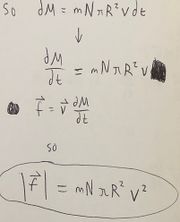 so dM = mNπR²v dt
↓
dM/dt = mNπR²v
f⃗ = v⃗ dM/dt
so
|f⃗| = mNπR²v²